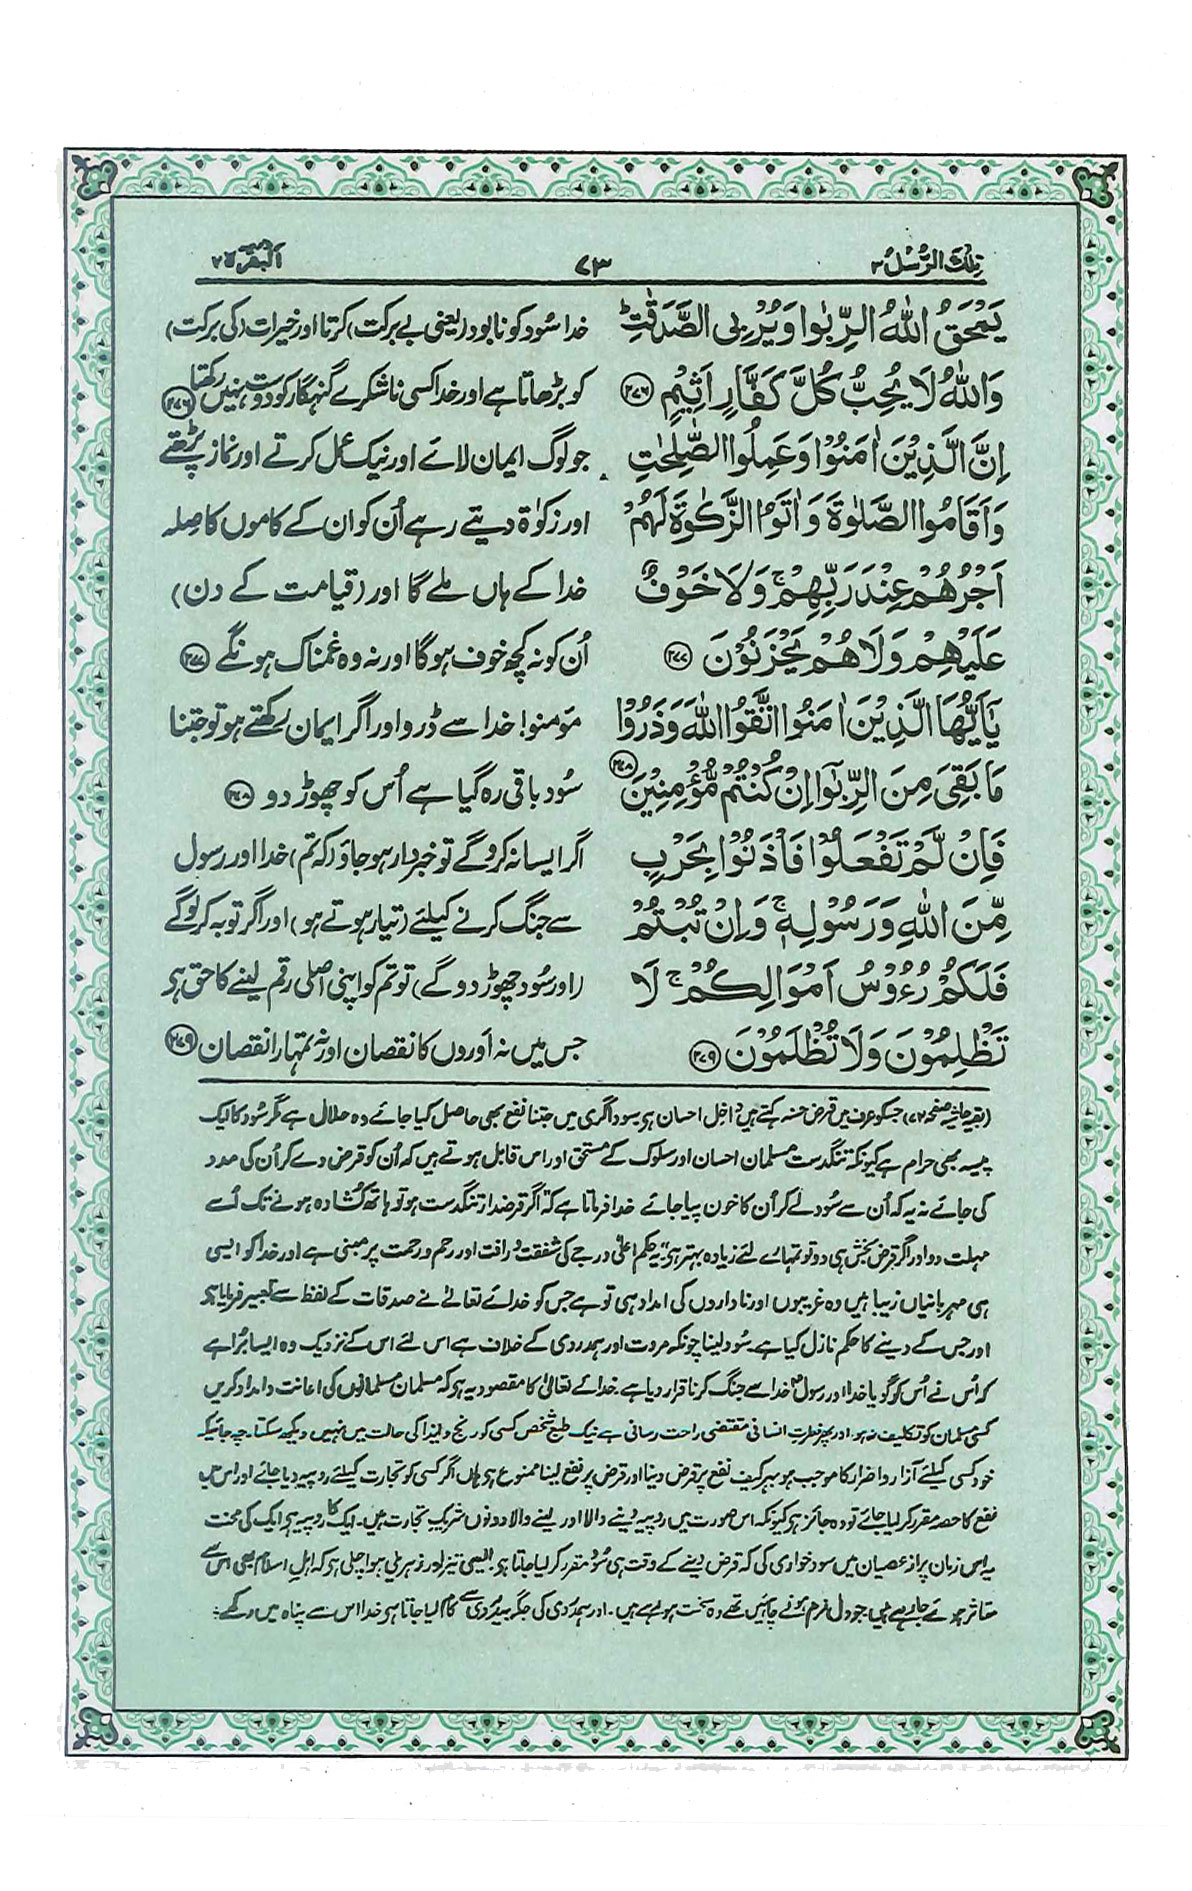 تِلْكَ الرُّسُلُ ۳
۷۳
اَلْبَقَرَة ۲
يَمْحَقُ اللّٰهُ الرِّبٰوا وَيُرْبِى الصَّدَقٰتِ ؕ
وَاللّٰهُ لَا يُحِبُّ كُلَّ كَفَّارٍ اَثِيْمٍ ﴿۲۷۶﴾
اِنَّ الَّذِيْنَ اٰمَنُوْا وَعَمِلُوا الصّٰلِحٰتِ
وَاَقَامُوا الصَّلٰوةَ وَاٰتَوُا الزَّكٰوةَ لَهُمْ
اَجْرُهُمْ عِنْدَ رَبِّهِمْ ۚ وَلَا خَوْفٌ
عَلَيْهِمْ وَلَا هُمْ يَحْزَنُوْنَ ﴿۲۷۷﴾
يٰٓاَيُّهَا الَّذِيْنَ اٰمَنُوا اتَّقُوا اللّٰهَ وَذَرُوْا
مَا بَقِىَ مِنَ الرِّبٰٓوا اِنْ كُنْتُمْ مُّؤْمِنِيْنَ ﴿۲۷۸﴾
فَاِنْ لَّمْ تَفْعَلُوْا فَاْذَنُوْا بِحَرْبٍ
مِّنَ اللّٰهِ وَرَسُوْلِهٖ ۚ وَاِنْ تُبْتُمْ
فَلَكُمْ رُءُوْسُ اَمْوَالِكُمْ ۚ لَا
تَظْلِمُوْنَ وَلَا تُظْلَمُوْنَ ﴿۲۷۹﴾
خدا سُود کو نابود (یعنی بے برکت) کرتا اور خیرات (کی برکت)
کو بڑھاتا ہے اور خدا کسی ناشکرے گنہگار کو دوست نہیں رکھتا ﴿۲۷۶﴾
جو لوگ ایمان لائے اور نیک عمل کرتے اور نماز پڑھتے
اور زکوٰۃ دیتے رہے اُن کو ان کے کاموں کا صِلہ
خدا کے ہاں ملے گا اور (قیامت کے دن)
اُن کو نہ کچھ خوف ہوگا اور نہ وہ غمناک ہونگے ﴿۲۷۷﴾
مومنو! خدا سے ڈرو اور اگر ایمان رکھتے ہو تو جتنا
سُود باقی رہ گیا ہے اُس کو چھوڑ دو ﴿۲۷۸﴾
اگر ایسا نہ کرو گے تو خبردار ہو جاؤ (کہ تم) خدا اور رسول
سے جنگ کرنے کیلئے (تیار ہوتے ہو) اور اگر توبہ کر لو گے
(اور سُود چھوڑ دو گے) تو تم کو اپنی اصلی رقم لینے کا حق ہی
جس میں نہ اَوروں کا نقصان اور نہ تمہارا نقصان ﴿۲۷۹﴾
(بقیہ حاشیہ صفحہ ۷۲) جسکو عرف میں قرض حسنہ کہتے ہیں داخل احسان ہی سوداگری میں جتنا نفع بھی حاصل کیا جائے وہ حلال ہے مگر سُود کا ایک
پیسہ بھی حرام ہے کیونکہ تنگدست مسلمان احسان اور سلوک کے مستحق اور اس قابل ہوتے ہیں کہ اُن کو قرض دے کر اُن کی مدد
کی جائے نہ یہ کہ اُن سے سُود لے کر اُن کا خون پیا جائے خدا فرماتا ہے کہ اگر قرضدار تنگدست ہو تو ہاتھ کُشادہ ہونے تک اُسے
مہلت دو اور اگر قرض بخش ہی دو تو تمہارے لئے زیادہ بہتر ہی یہ حکم اعلیٰ درجے کی شفقت و رافت اور رحم و رحمت پر مبنی ہے اور خدا کو ایسی
ہی مہربانیاں زیبا ہیں وہ غریبوں اور ناداروں کی امداد ہی تو ہے جس کو خدائے تعالیٰ نے صدقات کے لفظ سے تعبیر فرمایا ہی
اور جس کے دینے کا حکم نازل کیا ہے سُود لینا چونکہ مروت اور ہمدردی کے خلاف ہے اس لئے اس کے نزدیک وہ ایسا بُرا ہے
کہ اُس نے اُس کو گویا خدا اور رسولِ خدا سے جنگ کرنا قرار دیا ہے۔ خدائے تعالیٰ کا مقصود یہ ہی کہ مسلمان مسلمانوں کی اعانت و امداد کریں
کسی مسلمان کو تکلیف نہ ہو، اور پھر فطرتِ انسانی مقتضی راحت رسانی ہے نیک طبع شخص کسی کو رنج و ایذا کی حالت میں نہیں دیکھ سکتا۔ چہ جائیکہ
خود کسی کیلئے آزار و اضرار کا موجب ہو بہرکیف نفع پر قرض دینا اور قرض پر نفع لینا ممنوع ہی ہاں اگر کسی کو تجارت کیلئے روپیہ دیا جائے اور اس میں
نفع کا حصہ مقرر کر لیا جائے تو وہ جائز ہی کیونکہ اس صورت میں روپیہ دینے والا اور لینے والا دونوں شریک تجارت ہیں۔ ایک کا روپیہ ہی ایک کی محنت
ہی اس زمان پُر از عصیان میں سود خواری کی کہ قرض دینے کے وقت ہی سُود مقرر کر لیا جاتا ہو۔ ایسی تیز اور زہریلی ہوا چلی ہی کہ اہلِ اسلام بھی اس سے
متاثر ہوئے جا رہے ہیں۔ جو دل نرم ہونے چاہئیں تھے وہ سخت ہو رہے ہیں۔ اور ہمدردی کی جگہ بیدردی سے کام لیا جاتا ہی خدا اس سے پناہ میں رکھے۔